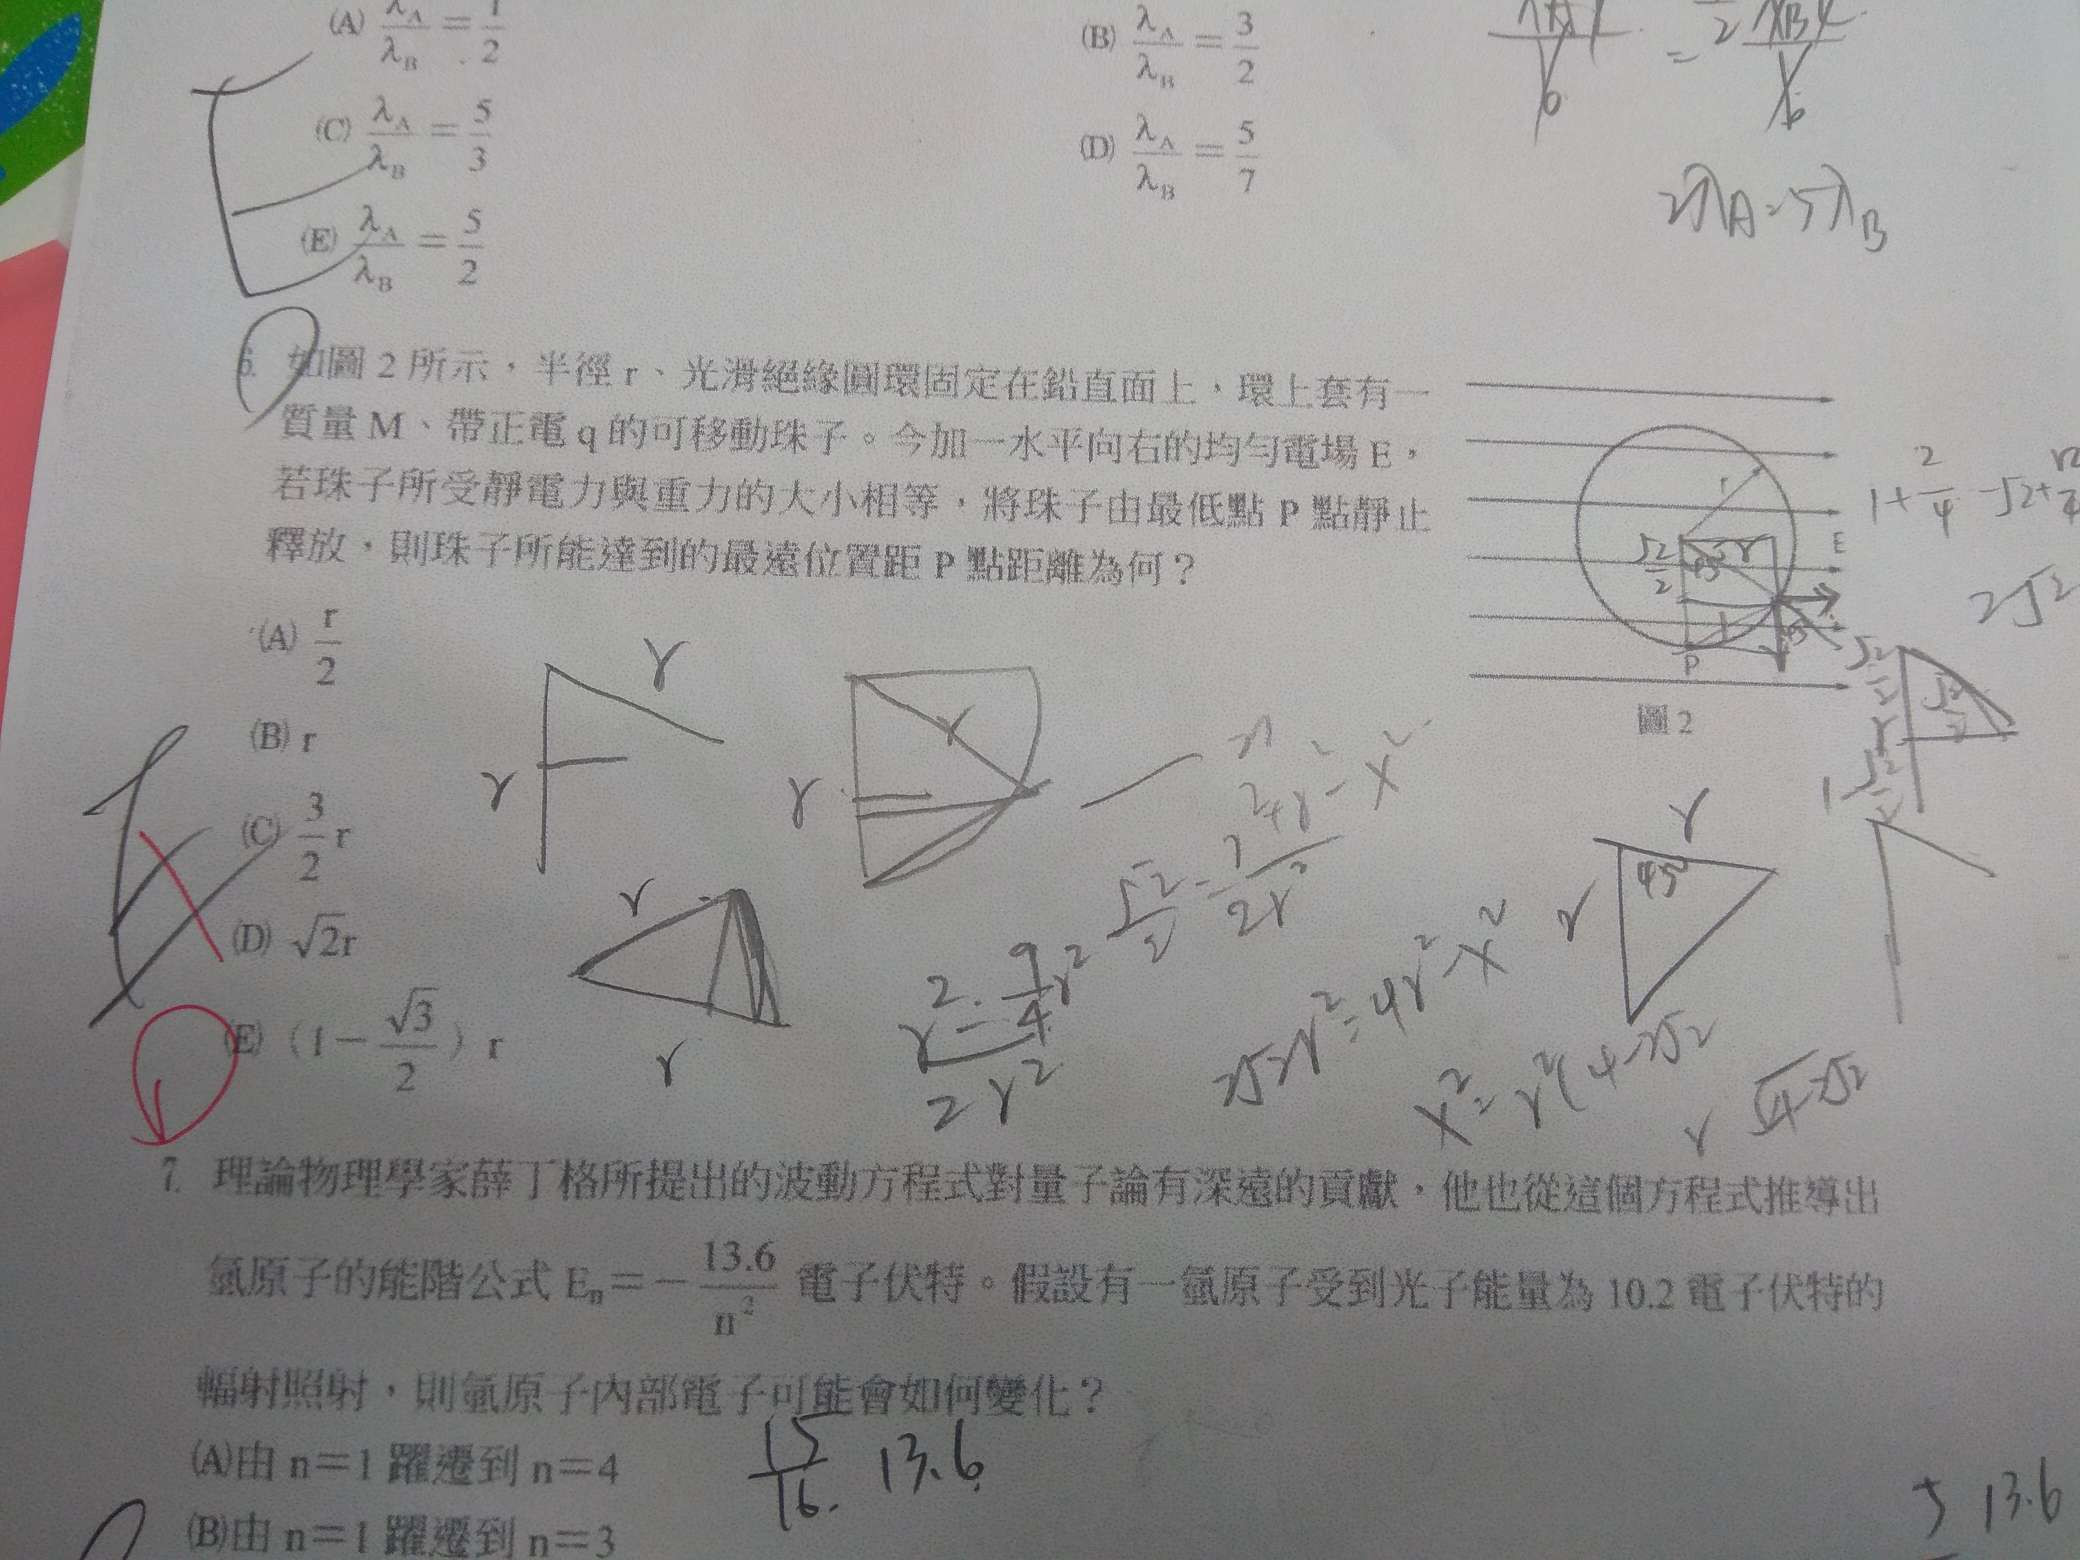 (A) λA/λB = 1/2
(B) λA/λB = 3/2
(C) λA/λB = 5/3
(D) λA/λB = 5/7
(E) λA/λB = 5/2
2λA=5λB
6. 如圖 2 所示，半徑 r、光滑絕緣圓環固定在鉛直面上，環上套有一
質量 M、帶正電 q 的可移動珠子。今加一水平向右的均勻電場 E，
若珠子所受靜電力與重力的大小相等，將珠子由最低點 P 點靜止
釋放，則珠子所能達到的最遠位置距 P 點距離為何？
(A) r/2
(B) r
(C) 3/2 r
(D) √2r
(E) (1－√3/2) r
r
E
P
圖 2
2√2
r
r
r
r
r
r
r
r
45°
2√2r²=4r²-x²
x²=r²(4-2√2
7. 理論物理學家薛丁格所提出的波動方程式對量子論有深遠的貢獻，他也從這個方程式推導出
氫原子的能階公式 En＝－13.6/n² 電子伏特。假設有一氫原子受到光子能量為 10.2 電子伏特的
輻射照射，則氫原子內部電子可能會如何變化？
(A)由 n＝1 躍遷到 n＝4
15/16 13.6
(B)由 n＝1 躍遷到 n＝3
13.6